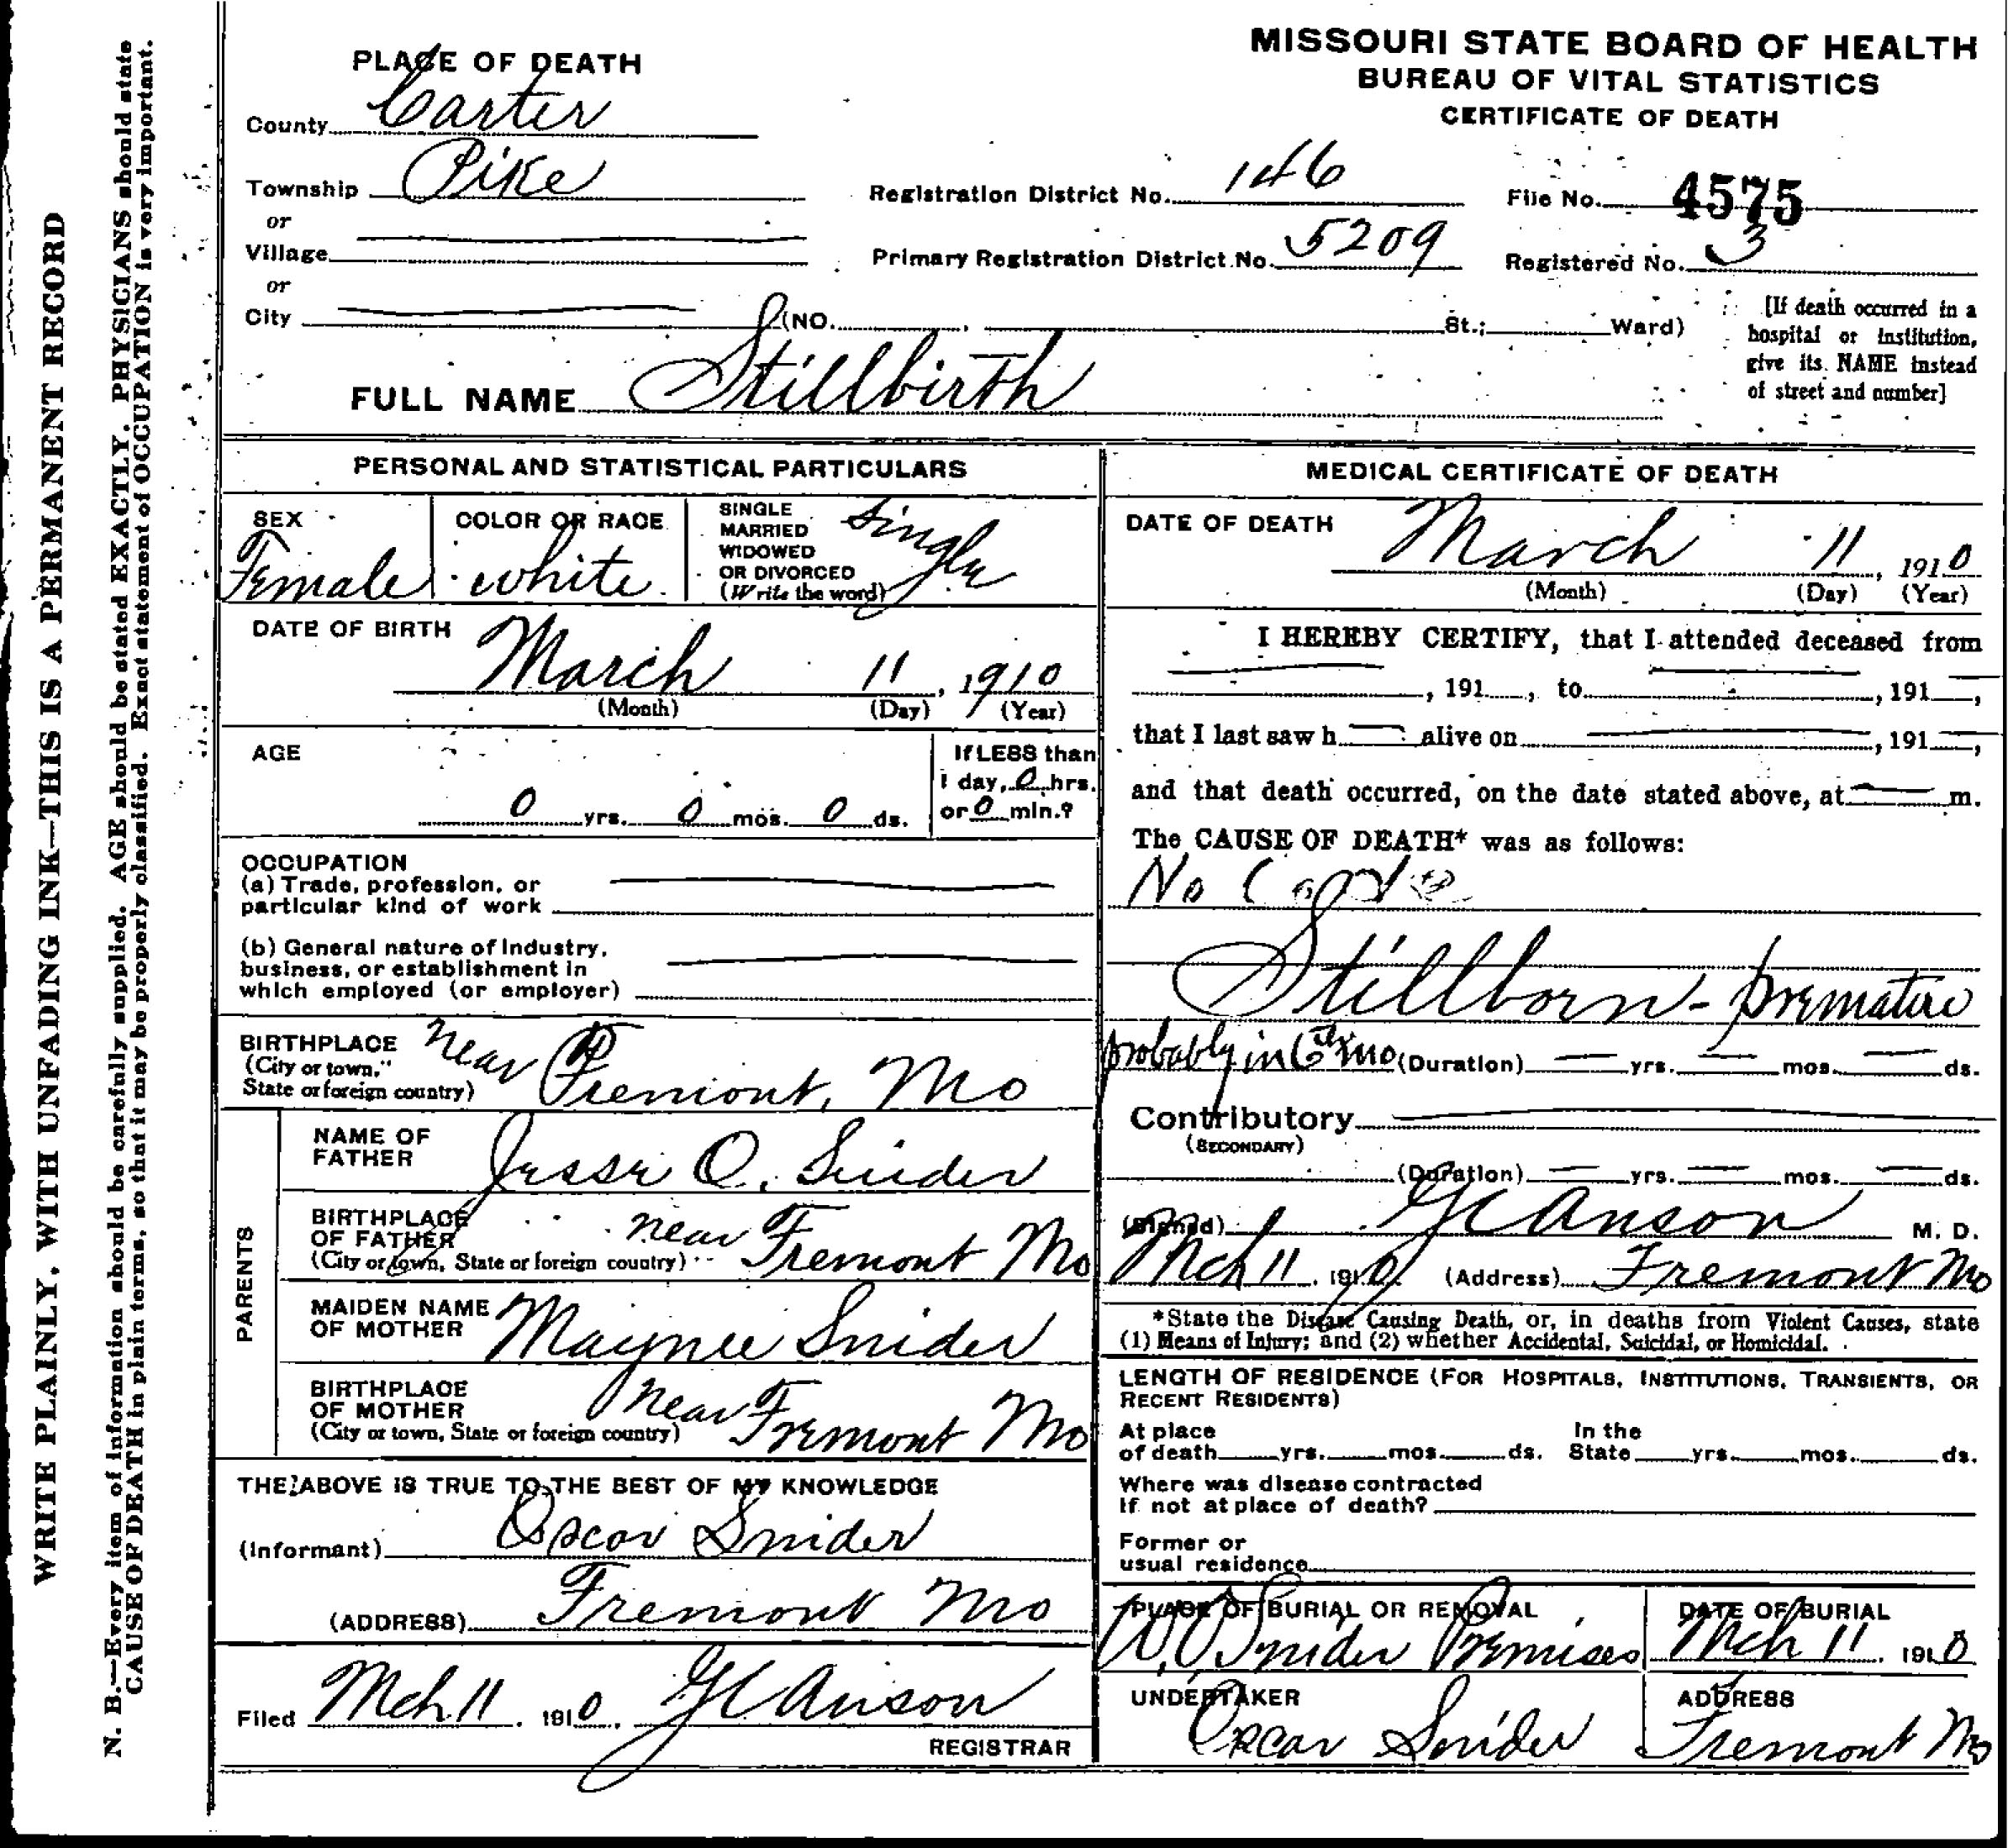 WRITE PLAINLY, WITH UNFADING INK—THIS IS A PERMANENT RECORD
N. B.—Every item of information should be carefully supplied. AGE should be stated EXACTLY. PHYSICIANS should state
CAUSE OF DEATH in plain terms, so that it may be properly classified. Exact statement of OCCUPATION is very important.
MISSOURI STATE BOARD OF HEALTH
BUREAU OF VITAL STATISTICS
CERTIFICATE OF DEATH
PLACE OF DEATH
County Carter
Township Pike
or
Village
or
City (NO. St.; Ward)
Registration District No. 146
File No. 4575
Primary Registration District No. 5209
Registered No. 3
[If death occurred in a
hospital or institution,
give its NAME instead
of street and number]
FULL NAME Stillbirth
PERSONAL AND STATISTICAL PARTICULARS
SEX Female
COLOR OR RACE white
SINGLE
MARRIED
WIDOWED
OR DIVORCED
(Write the word) Single
DATE OF BIRTH March 11, 1910
(Month) (Day) (Year)
AGE
0 yrs. 0 mos. 0 ds.
If LESS than
1 day, 0 hrs.
or 0 min.?
OCCUPATION
(a) Trade, profession, or
particular kind of work
(b) General nature of Industry,
business, or establishment in
which employed (or employer)
BIRTHPLACE
(City or town,
State or foreign country) near Fremont, Mo
PARENTS
NAME OF
FATHER Jesse O. Snider
BIRTHPLACE
OF FATHER
(City or town, State or foreign country) near Fremont Mo
MAIDEN NAME
OF MOTHER Maynee Snider
BIRTHPLACE
OF MOTHER
(City or town, State or foreign country) near Fremont Mo
THE ABOVE IS TRUE TO THE BEST OF MY KNOWLEDGE
(Informant) Oscar Snider
(ADDRESS) Fremont Mo
Filed Mch 11, 1910, G C Anson
REGISTRAR
MEDICAL CERTIFICATE OF DEATH
DATE OF DEATH March 11, 1910
(Month) (Day) (Year)
I HEREBY CERTIFY, that I attended deceased from
, 191 , to , 191 ,
that I last saw h alive on , 191 ,
and that death occurred, on the date stated above, at m.
The CAUSE OF DEATH* was as follows:
No
Stillborn - premature
probably in 6th mo (Duration) yrs. mos. ds.
Contributory
(SECONDARY)
(Duration) yrs. mos. ds.
(Signed) G C Anson M. D.
Mch 11, 1910 (Address) Fremont Mo
*State the Disease Causing Death, or, in deaths from Violent Causes, state
(1) Means of Injury; and (2) whether Accidental, Suicidal, or Homicidal.
LENGTH OF RESIDENCE (FOR HOSPITALS, INSTITUTIONS, TRANSIENTS, OR
RECENT RESIDENTS)
At place
of death yrs. mos. ds.
In the
State yrs. mos. ds.
Where was disease contracted
if not at place of death?
Former or
usual residence
PLACE OF BURIAL OR REMOVAL
W. O Snider Premises
DATE OF BURIAL
Mch 11 1910
UNDERTAKER
Oscar Snider
ADDRESS
Fremont Mo